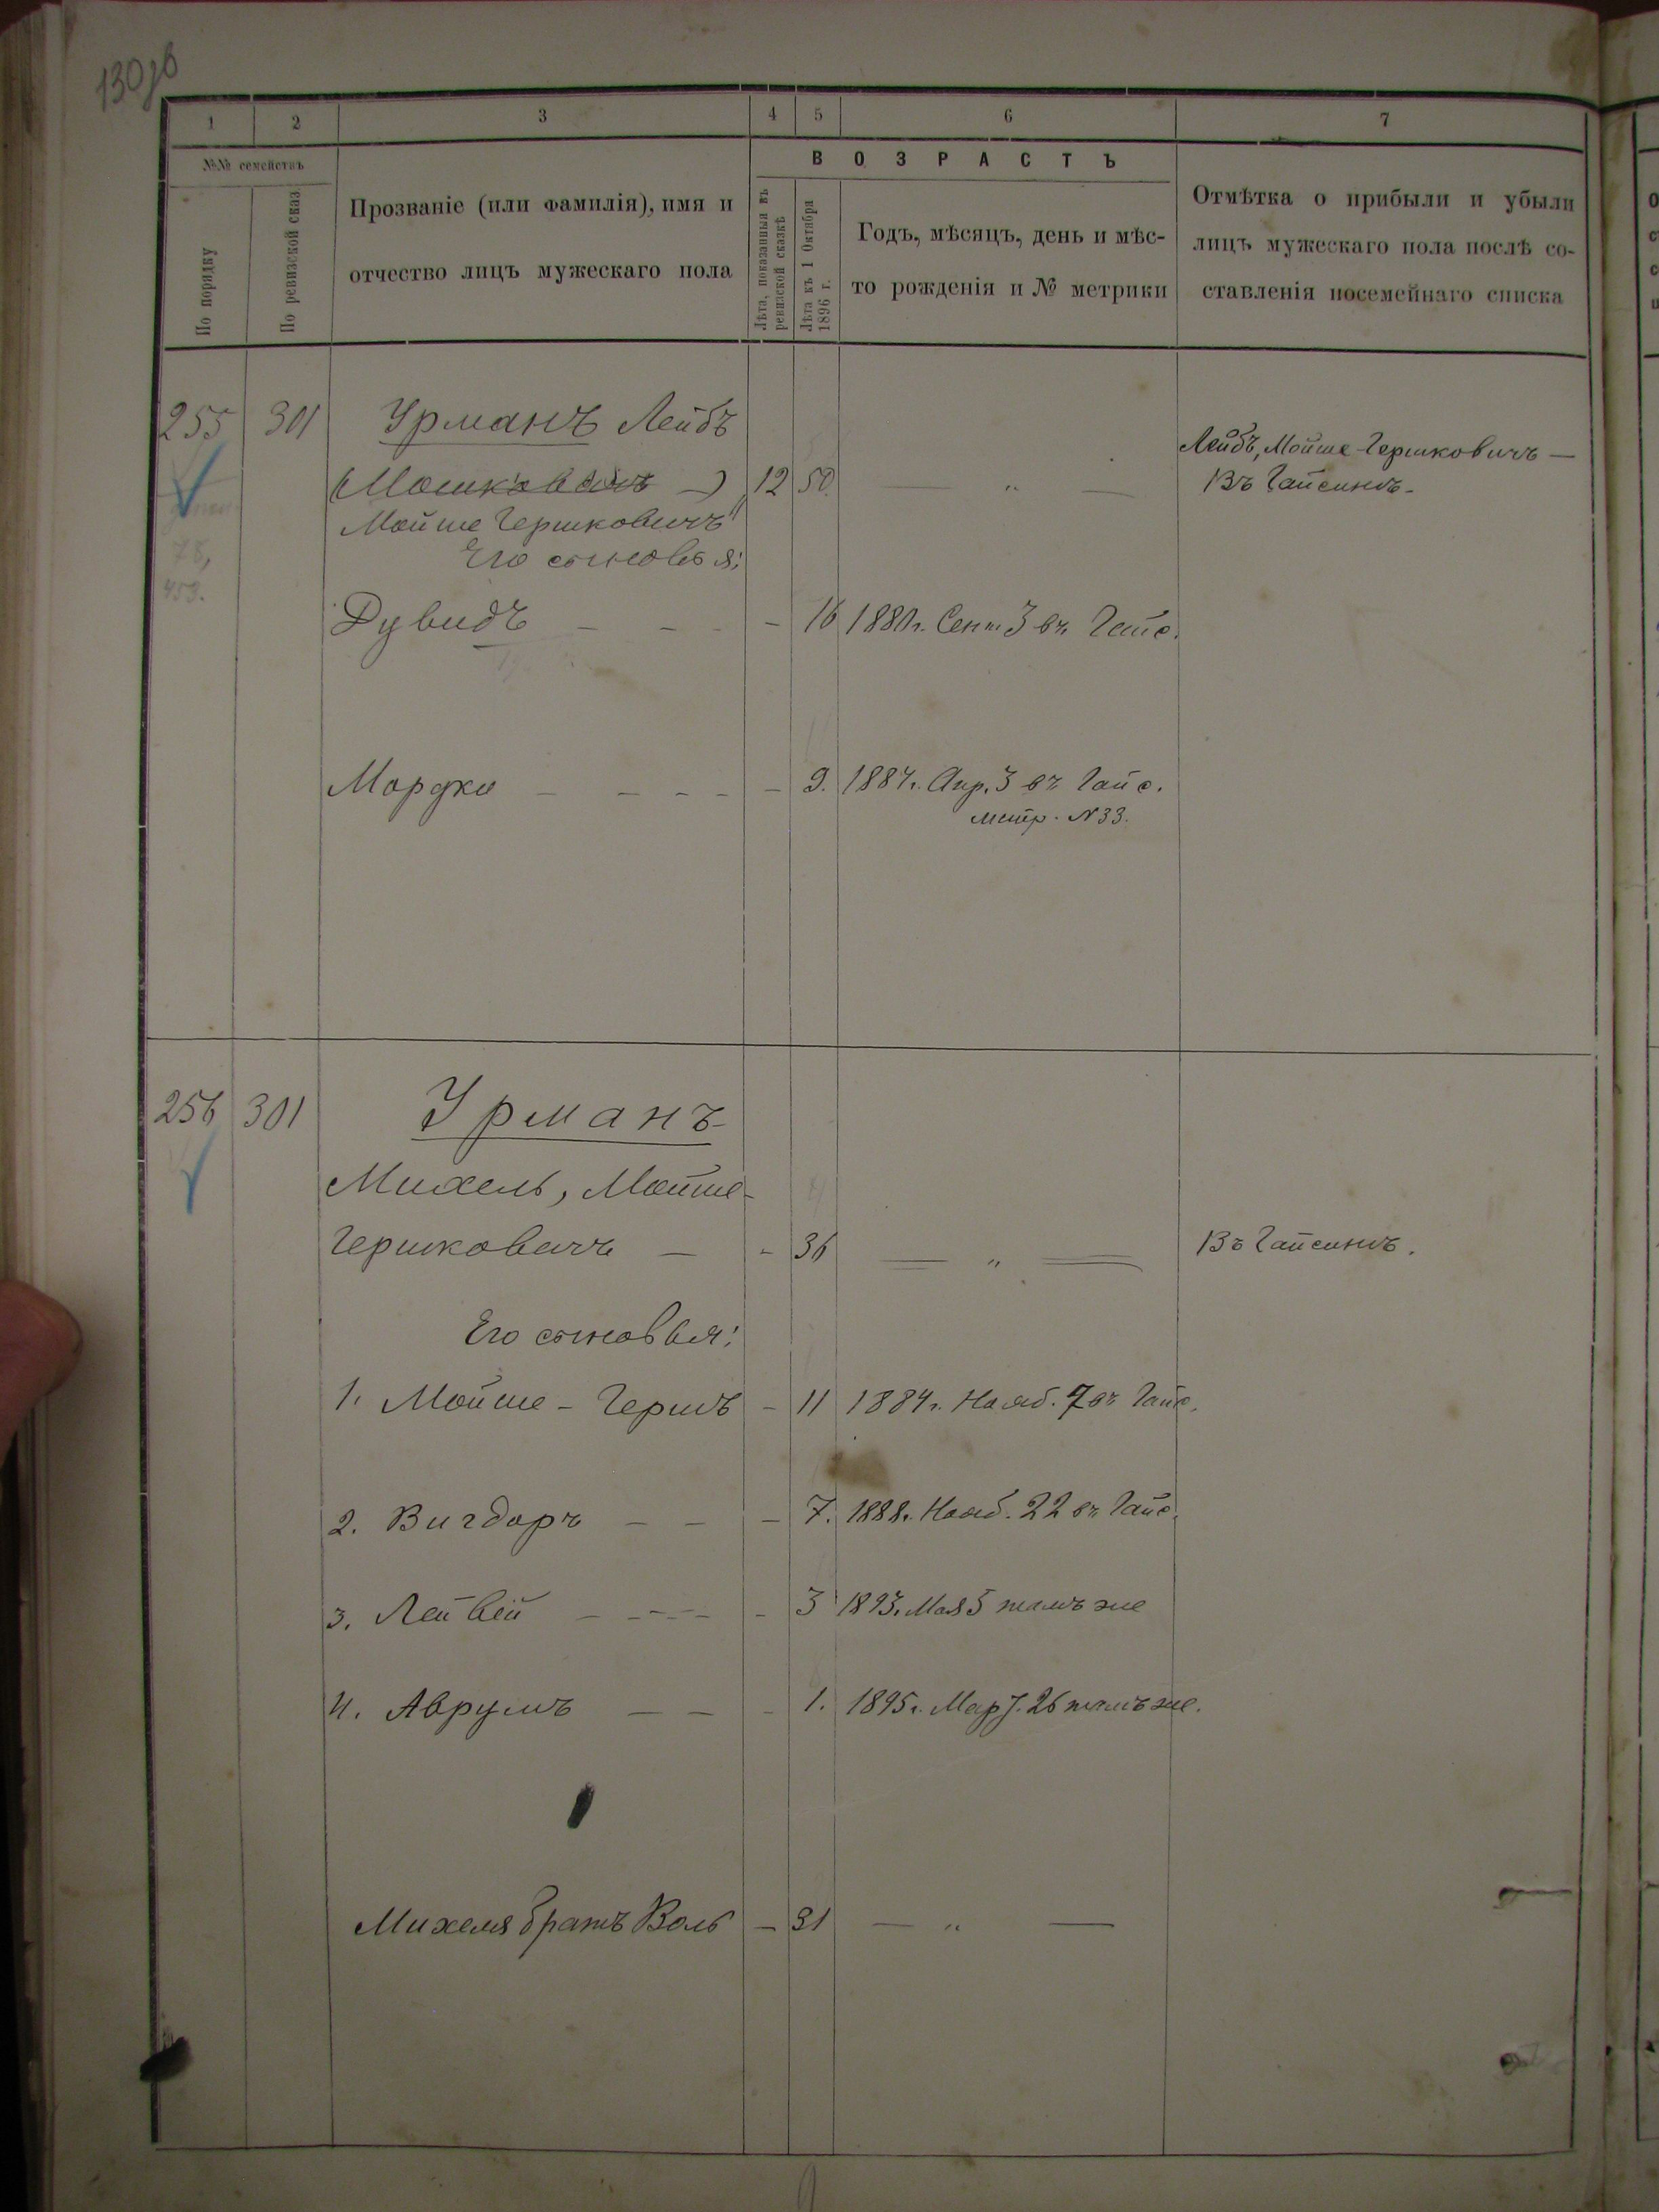 130 об
1 2 3 4 5 6 7
№№ семействъ
По порядку
По ревизской сказ
Прозваніе (или фамилія), имя и
отчество лицъ мужескаго пола
ВОЗРАСТЪ
Лѣта, показанныя въ
ревизской сказкѣ
Лѣта къ 1 Октября
1896 г.
Годъ, мѣсяцъ, день и мѣс-
то рожденія и № метрики
Отмѣтка о прибыли и убыли
лицъ мужескаго пола послѣ со-
ставленія посемейнаго списка
255 301 Урманъ Лейбъ
Лейбъ, Мойше-Гершковичъ —
(Мошковичъ —) 12 50 — " — Въ Гайсинѣ.
Мойше Гершковичъ
Его сыновья:
78,
459.
Дувидъ — — — 16 1880 г. Сент. 3 въ Гайс.
Мордко — — — — — 9. 1887 г. Апр. 3 въ Гайс.
метр. N 33.
256 301 Урманъ
Михель, Мойше-
Гершковичъ — - 36 — " — Въ Гайсинѣ.
Его сыновья:
1. Мойше-Гершъ - 11 1884 г. Нояб. 7 въ Гайс.
2. Вигдоръ — — — 7. 1888 г. Нояб. 22 въ Гайс.
3. Лейвей — - - - - 3 1893. Мая 5 тамъ же
4. Аврумъ — — - 1. 1895 г. Март. 26 тамъ же.
Михеля братъ Воль — 31 — " —